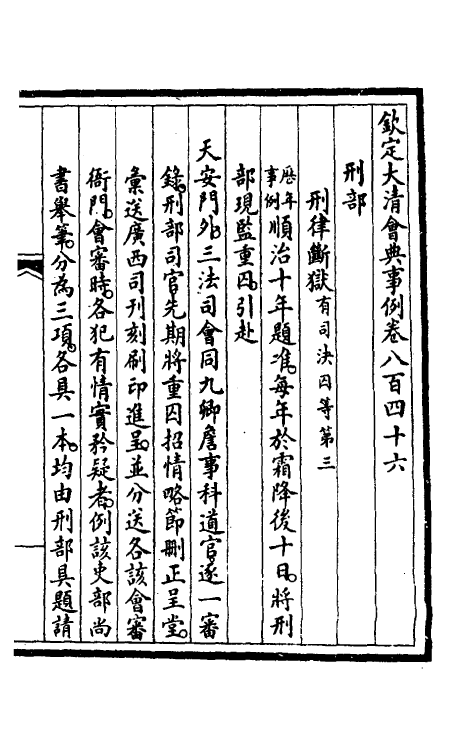 欽定大清會典事例卷八百四十六
刑部
刑律斷獄有司決囚等第三
歷年事例順治十年題准。每年於霜降後十日。將刑
部現監重囚。引赴
天安門外。三法司會同九卿詹事科道官。逐一審
錄。刑部司官先期將重囚招情略節刪正呈堂。
彙送廣西司刊刻刷印進呈。並分送各該會審
衙門。會審時。各犯有情實矜疑者。例該吏部尚
書舉筆。分為三項。各具一本。均由刑部具題請